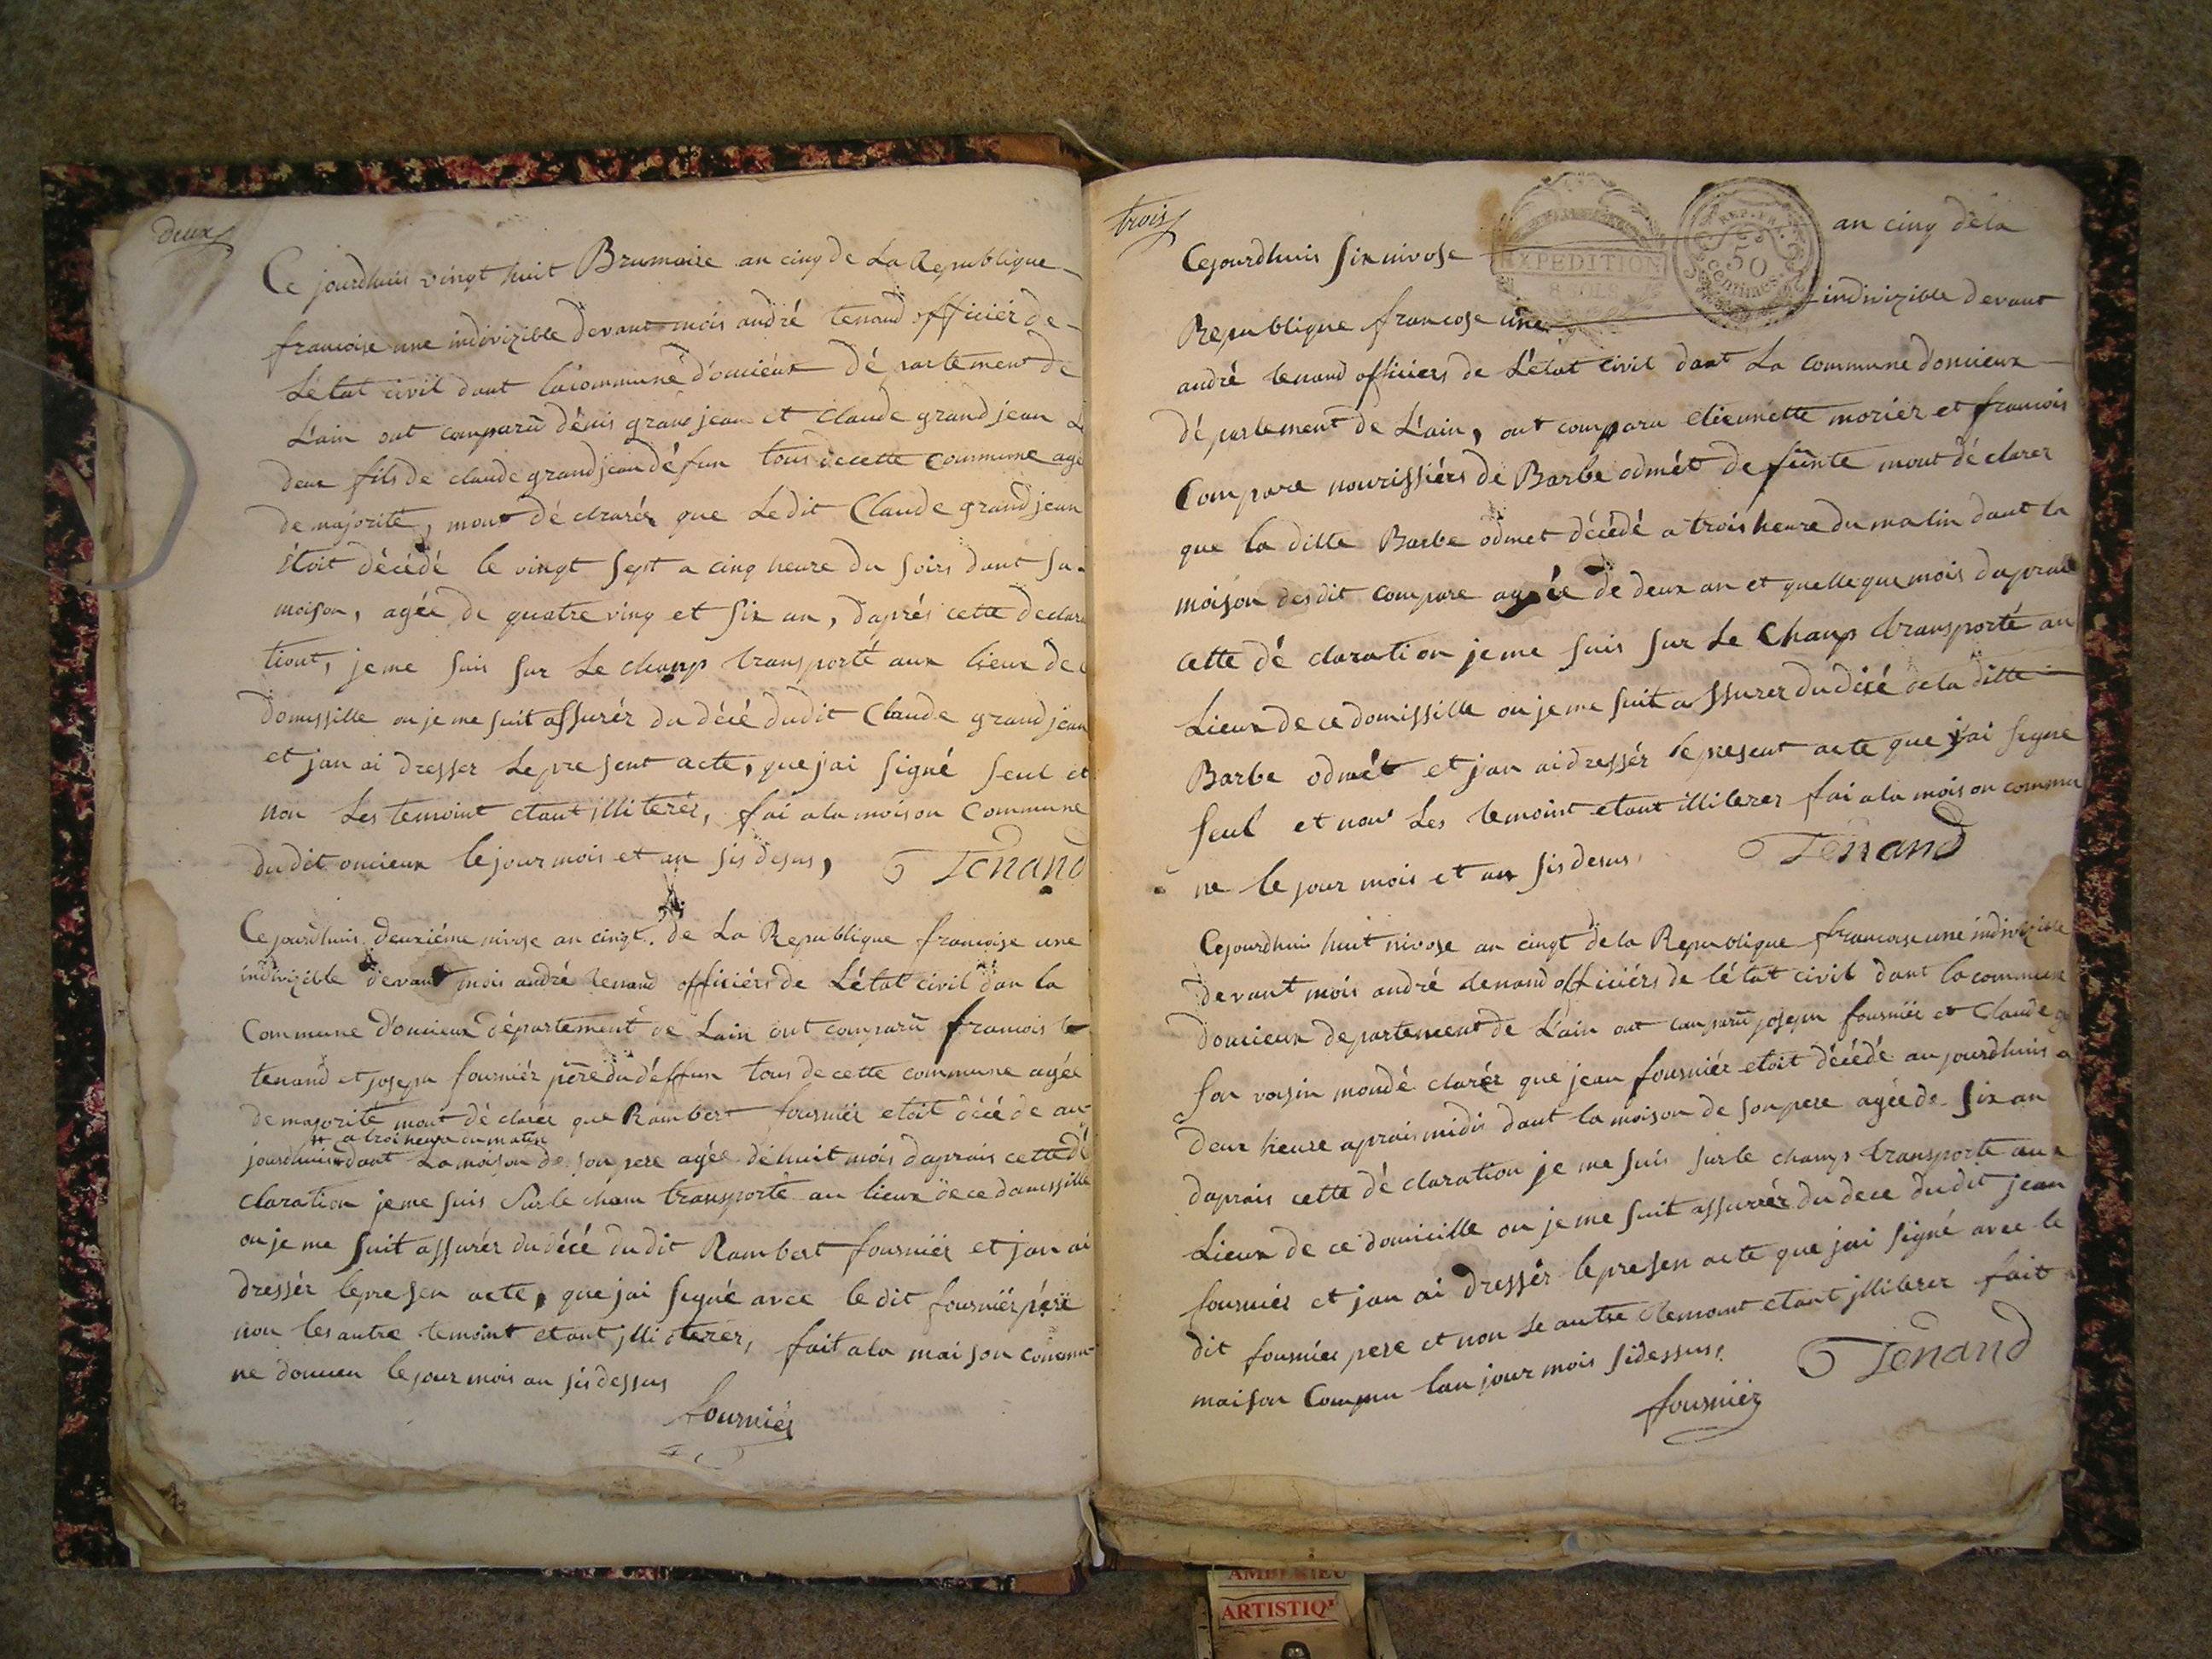 deux
Ce jourdhuis vingt huit Brumaire an cinq de La Republique
francoise une indivizible devant mois andré tenand officiér de
Létat civil dant la commune d'oncieux dé partement de
L'ain ont comparu dénis grand jean et Claude grand jean
deux fils de claude grandjean défun tous de cette commune agé
de majorité, mont dé clarér que Ledit Claude grandjean
étoit décédé le vingt sept a cinq heure du soirs dant sa
moison, agée de quatre ving et six an, daprés cette declara
tiont, je me suis sur Le champ transporté aux lieux de
domissille ou je me suit assurér du décé dudit Claude grandjean
et jan ai dresser Le present acte, que j'ai signé seul et
non Les temoint etant illiterér, fai a la moison Commune
du dit oncieux le jour mois et an sis desus, Tenand
Ce jourdhuis deuxiéme nivose an cingt de La Republique francoise une
indivizible devant mois andré tenand officiérs de Létat civil dan la
Commune d'oncieux département de Lain ont comparu francois te
tenand et joseph fourniér pére du déffun tous de cette commune agée
de majorité mont dé clarér que Rambert fourniér etoit décé de au
a troi heure du matin
jourdhuis dant La moison de son pere agée de huit mois daprais cette dé
claration je me suis sur le cham transporte au lieux de ce domissille
ou je me suit assurér du décé du dit Rambert fourniér et jan ai
dressér le presen acte, que jai signé avec le dit fourniér pére
non les autre temoint etant illiterér, fait a la maison commu-
ne doncieu le jour mois an sis dessus
fourniér
trois
Cejourdhuis six nivose an cinq de la
EXPEDITION
8 SOLS
REP. FR.
50
Centimes
Republique francose une indivizible devant
andré tenand officiers de Létat civil dant La commune doncieux
dé partement de L'ain, ont comparu etiennette moriér et francois
Compare nourissiérs de Barbe odmét de funte mont dé clarer
que la ditte Barbe odmet décédé a trois heure du matin dant la
moison desdit compare agée de deux an et quelleque mois daprai
cette dé claration je me suis sur Le Champ transporté au
Lieux de ce domissille ou je me suit assurer du décé de la ditte
Barbe odmét et jan ai dressér le present acte que j'ai signe
seul et non Les temoint etant illiterer fai a la moison commu
ne le jour mois et an sis desus Tenand
Cejourdhui huit nivose an cingt de la Republique francoise une indivizible
devant mois andré denand officiérs de létat civil dant la commune
doncieux departement de L'ain ont comparu joseph fourniér et Claude
son voisin mondé clarér que jean fourniér etoit décédé au jourdhuis a
deux heure aprais midis dant la moison de son pere agée de six an
daprais cette dé claration je me suis sur le champ transporte aux
Lieux de ce domicille ou je me suit assurér du dece dudit jean
fourniér et jan ai dressér le presen acte que jai signé avec le
dit fourniér pere et non Le autre temoint etant illiterer fait
maison Commu lan jour mois sidessus, Tenand
fourniér
AMBERIEU
ARTISTIQ